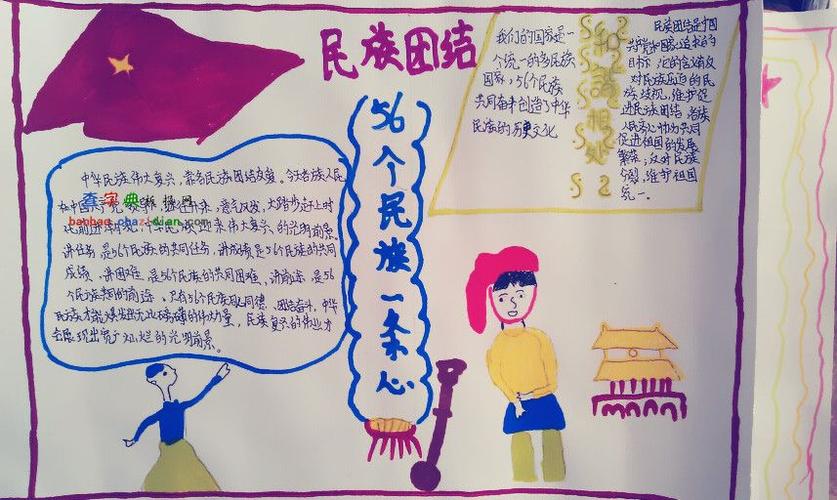 民族团结
56个民族一条心
我们的国家是一
个统一的多民族
国家，56个民族
共同奋斗创造了中华
民族的历史文化
和谐相处
民族团结是中国
共产党和国家追求的
目标，它的含义反
对民族压迫的民
族歧视，维护促
进民族团结，各族
人民齐心协力共同
促进祖国的发展
繁荣，反对民族
分裂，维护祖国
统一。
中华民族伟大复兴，靠各民族团结友爱。今天各族人民
在中国
查字典板报网
banbao.chazidian.com
讲任务，是56个民族的共同任务，讲成绩是56个民族的共同
成绩，讲困难，是56个民族的共同困难，讲前途，是56
个民族共同的前途。只有56个民族同心同德、团结奋斗，中华
民族才能爆发出无比磅礴的伟大力量，民族复兴的伟业才
会展现出更广灿烂的光明前景。